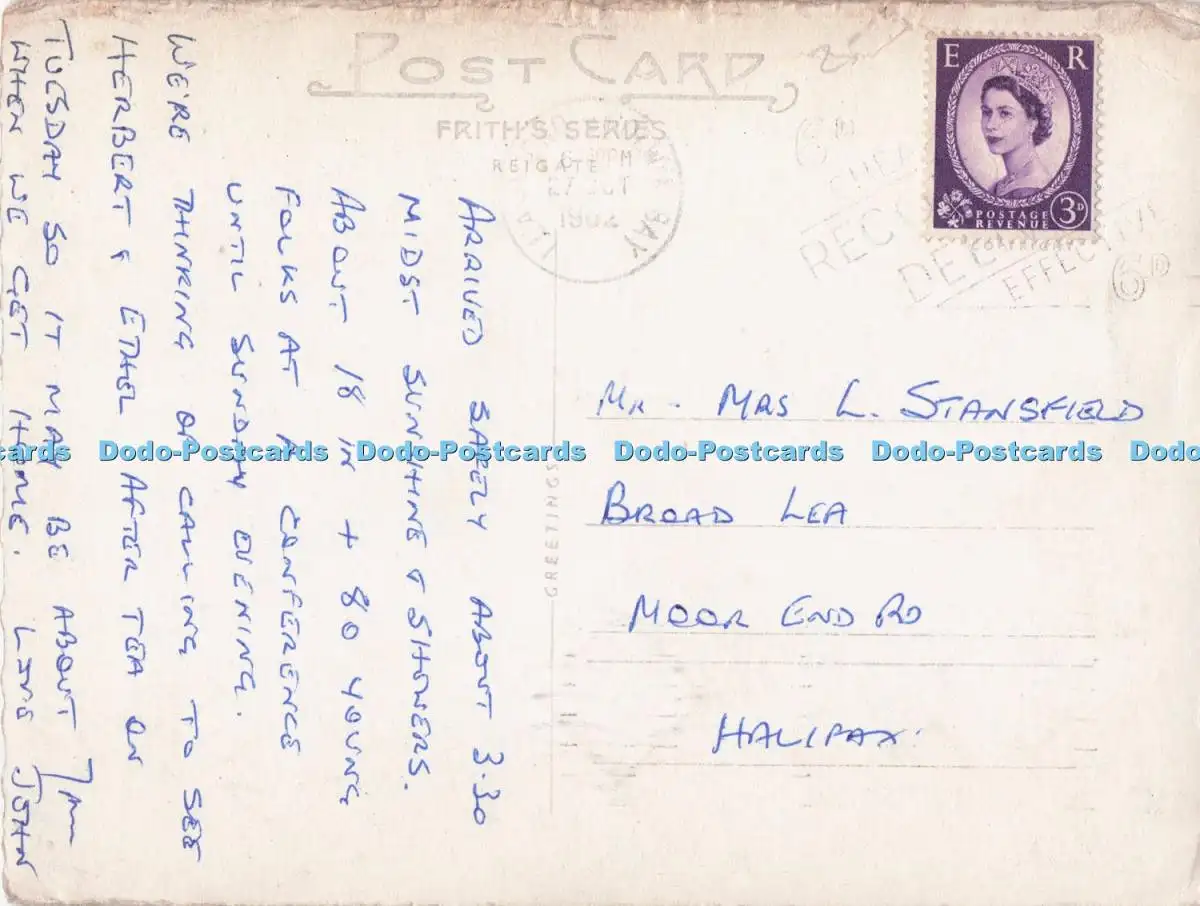 POST CARD
FRITH'S SERIES
REIGATE
27 OCT
1962
BAY
E R
POSTAGE
REVENUE
3D
COPYRIGHT
EFFECTIVE
6D
ARRIVED SAFELY ABOUT 3.30
MIDST SUNSHINE & SHOWERS.
ABOUT 18 IN + 80 YOUNG
FOLKS AT A CONFERENCE
UNTIL SUNDAY EVENING.
WE'RE THINKING OF CALLING TO SEE
HERBERT & ETHEL AFTER TEA ON
TUESDAY SO IT MAY BE ABOUT 7PM
WHEN WE GET HOME. LOVE JOHN
GREETINGS
MR - MRS L. STANSFIELD
BROAD LEA
MOOR END RD
HALIFAX.
Dodo-Postcards Dodo-Postcards Dodo-Postcards Dodo-Postcards